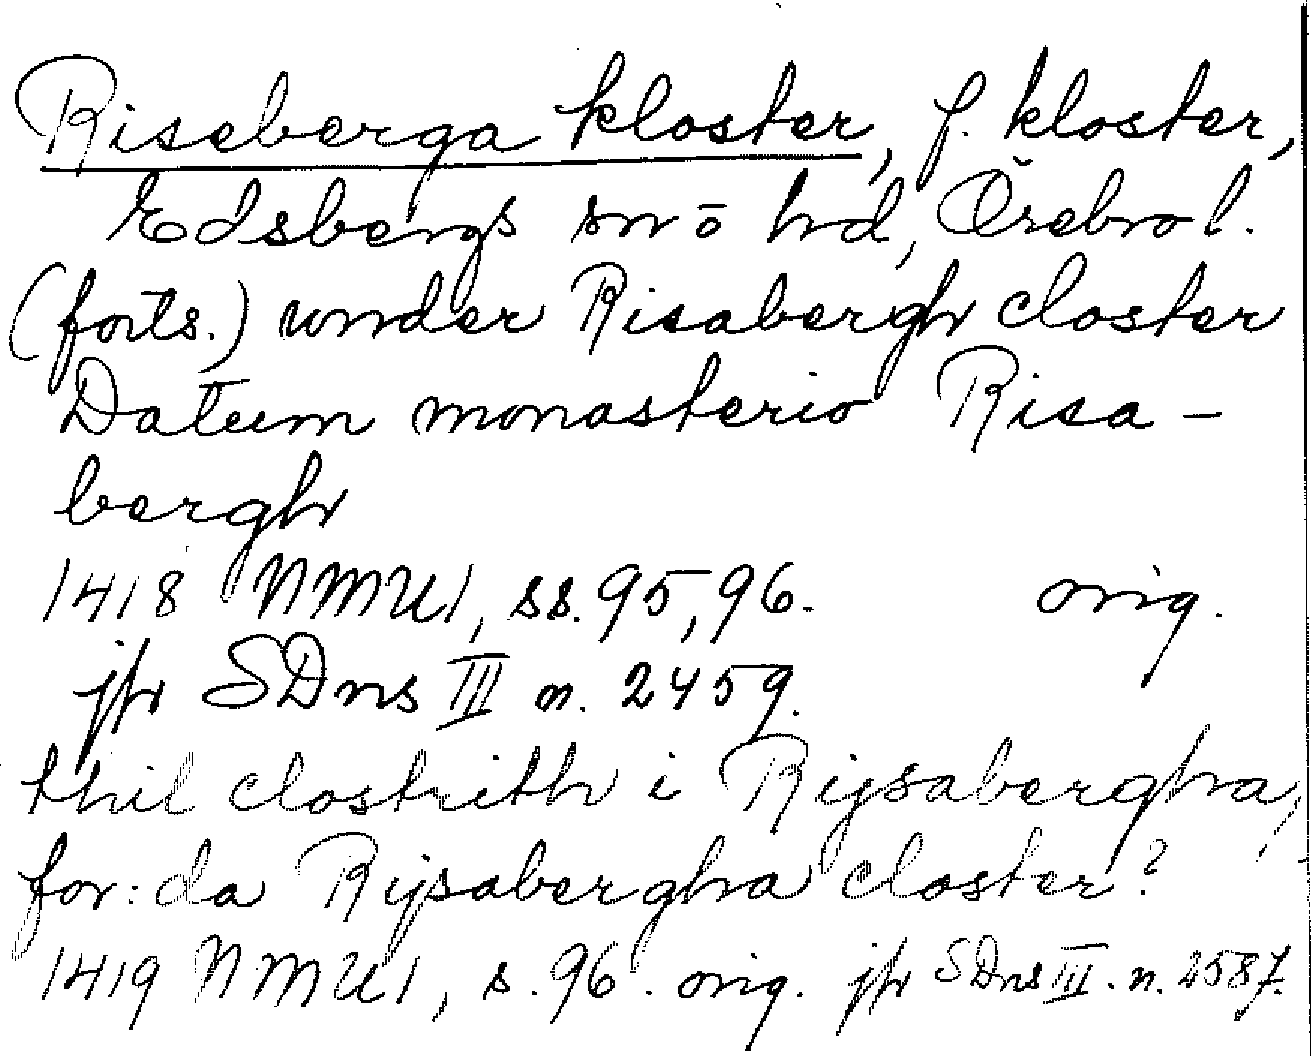 Riseberga kloster, f. kloster,
Edsbergs sn o hd, Örebro l.
(forts.) under Risabergh closter
Datum monasterio Risa-
bergh
1418 NMU1, ss. 95, 96. orig.
jfr SDns III n. 2459.
thil clostrith i Rijsabergha,
for:da Rijsabergha closter?
1419 NMU1, s. 96. orig. jfr SDns III. n. 2587.